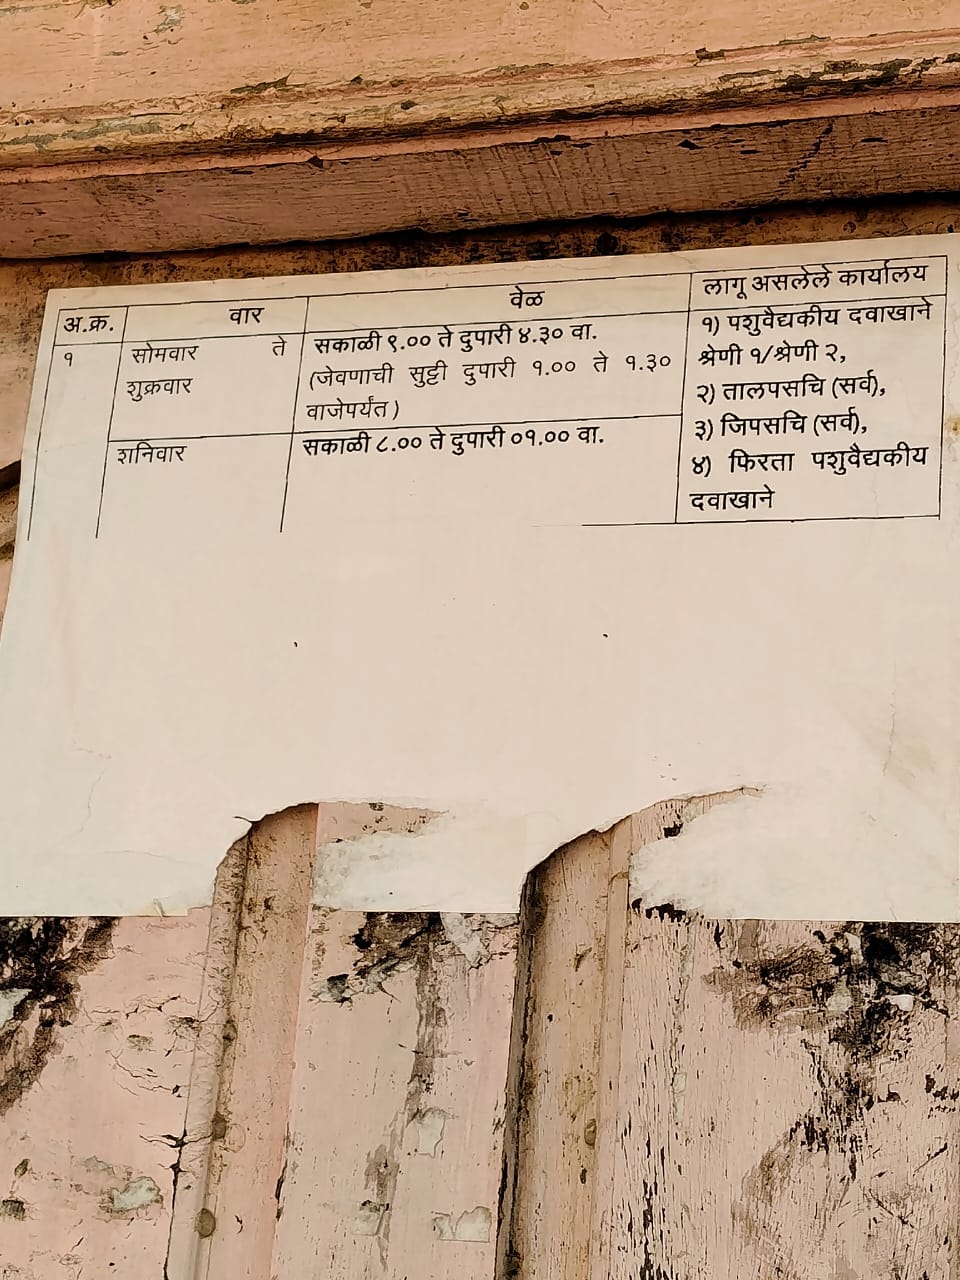 अ.क्र. वार वेळ लागू असलेले कार्यालय
१ सोमवार ते सकाळी ९.०० ते दुपारी ४.३० वा. १) पशुवैद्यकीय दवाखाने
शुक्रवार (जेवणाची सुट्टी दुपारी १.०० ते १.३० श्रेणी १/श्रेणी २,
वाजेपर्यंत) २) तालपसचि (सर्व),
शनिवार सकाळी ८.०० ते दुपारी ०१.०० वा. ३) जिपसचि (सर्व),
४) फिरता पशुवैद्यकीय
दवाखाने